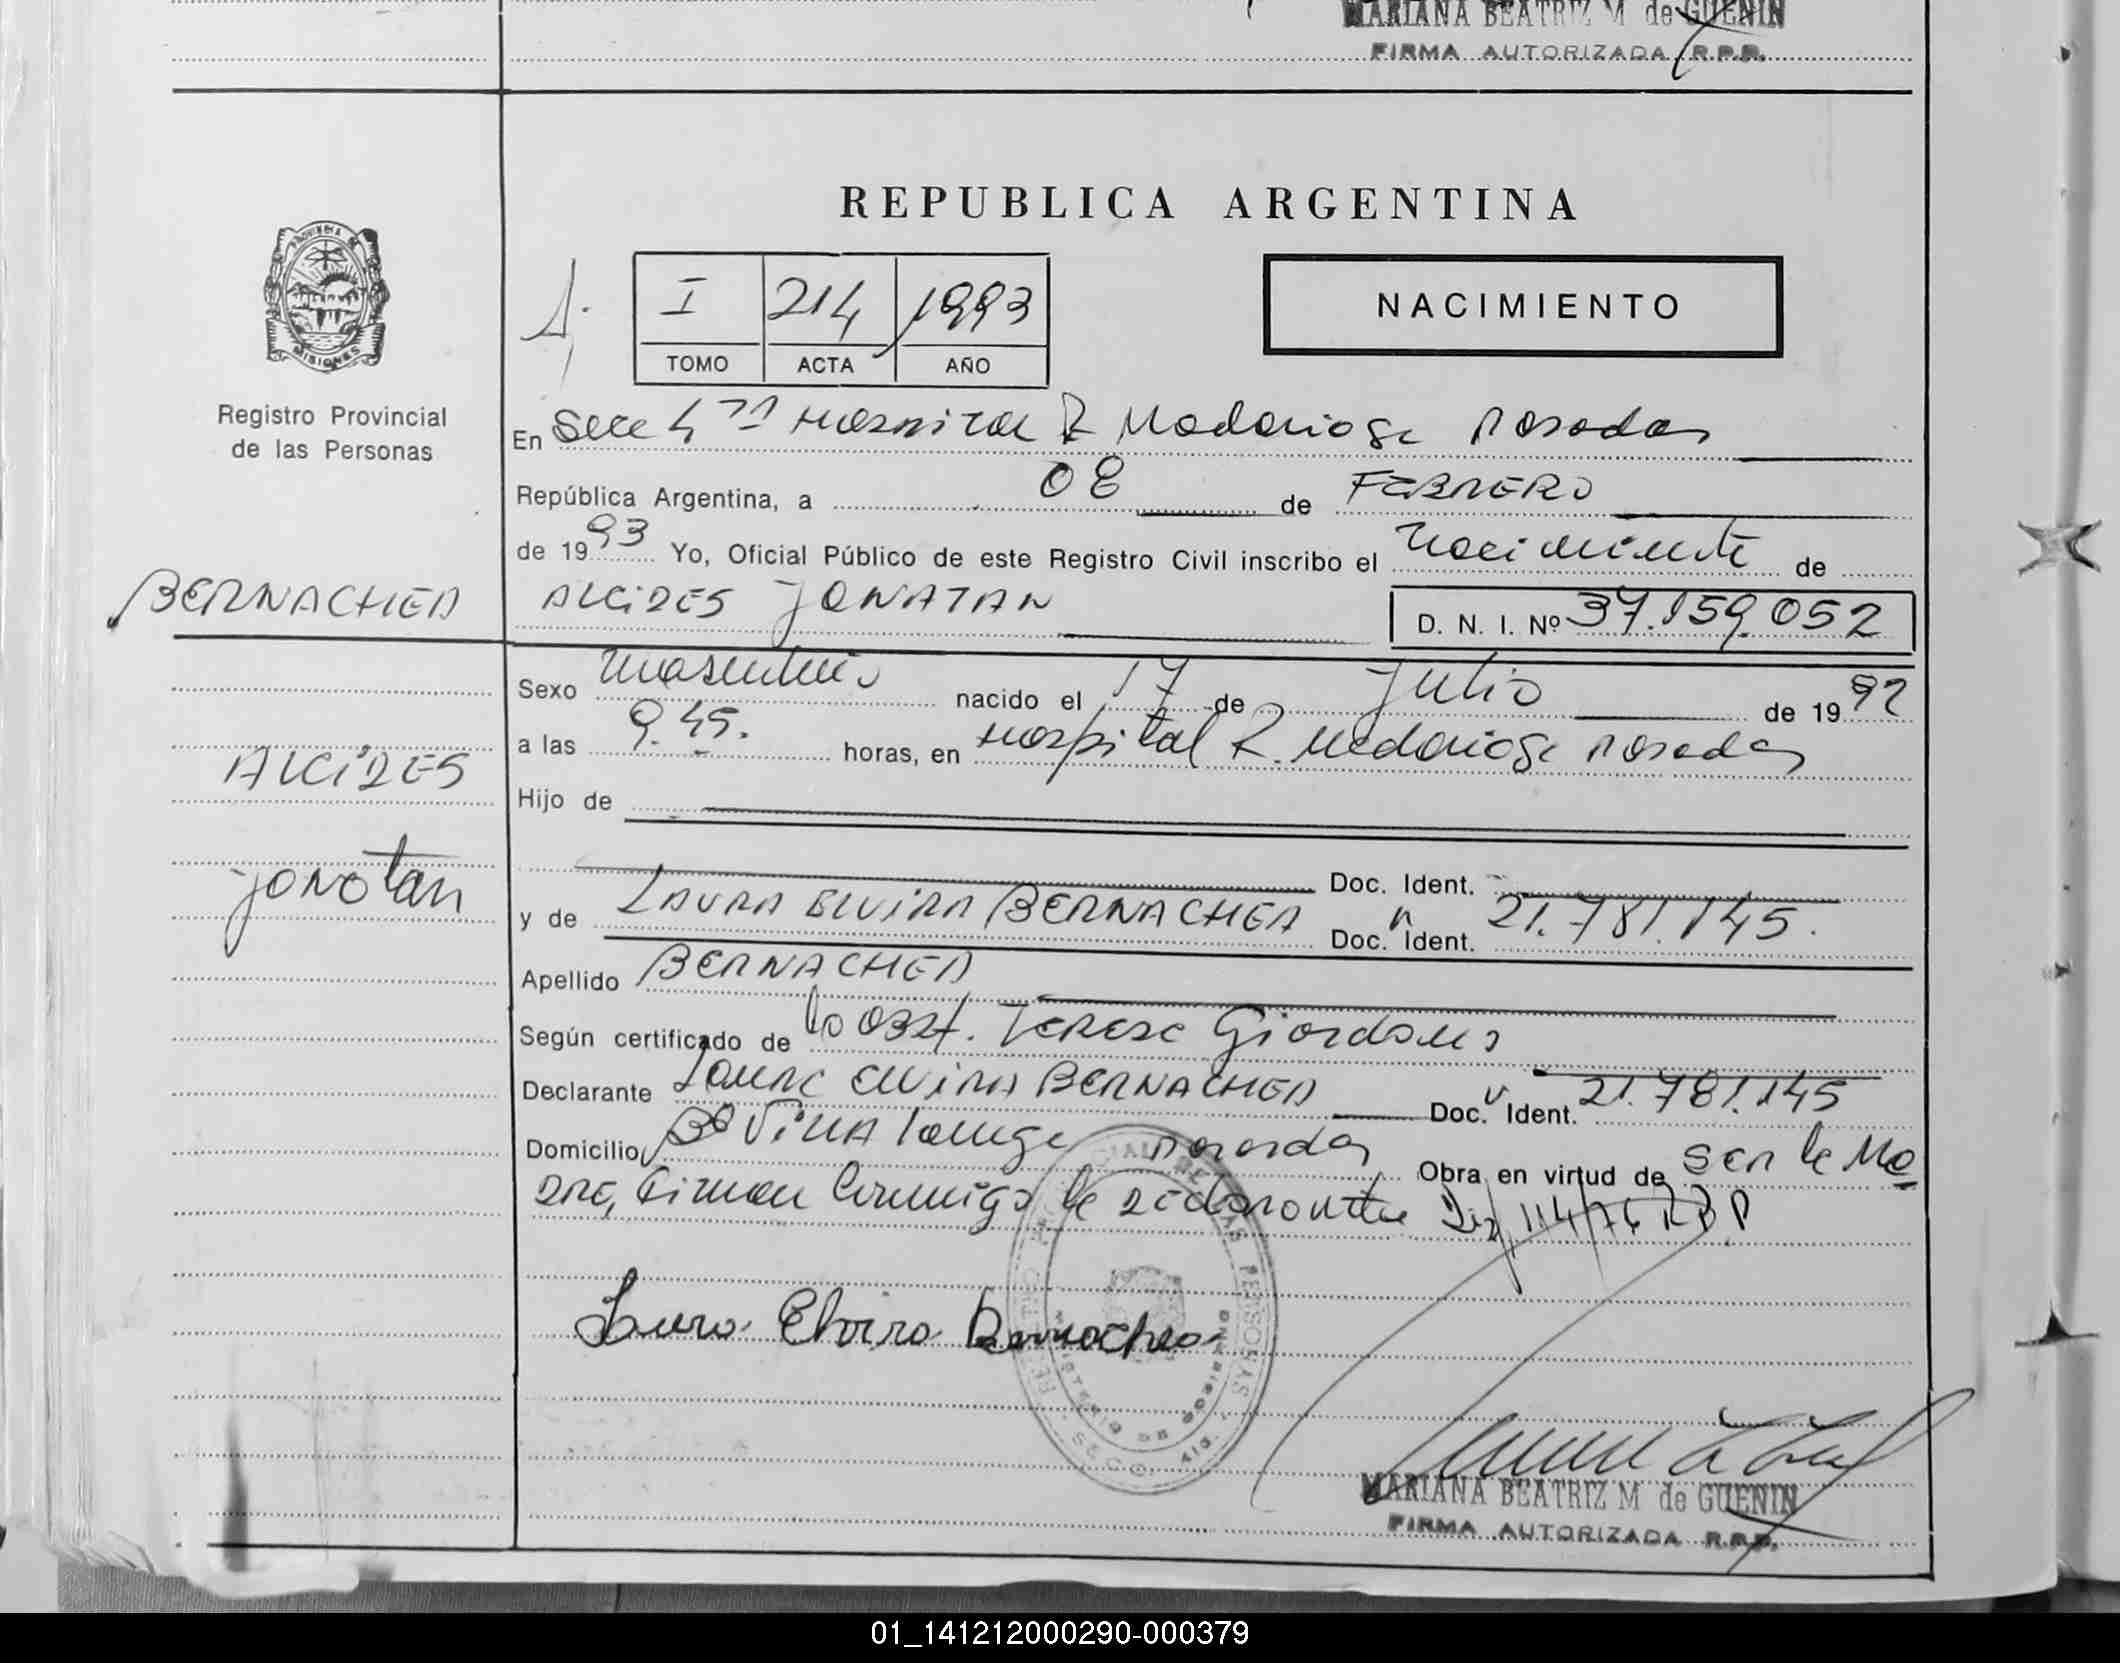 MARIANA BEATRIZ M de GUENIN
FIRMA AUTORIZADA R.P.P.
REPUBLICA ARGENTINA
PROVINCIA DE
MISIONES
I 214 1993
TOMO ACTA AÑO
NACIMIENTO
Registro Provincial
de las Personas
En Secc 4ta Hospital R Madariaga Posadas
República Argentina, a 08 de FEBRERO
de 1993 Yo, Oficial Público de este Registro Civil inscribo el Nacimiento de
BERNACHEA
ALCIDES JONATAN
D. N. I. Nº 37.159.052
Sexo Masculino nacido el 17 de Julio de 1992
a las 9.45. horas, en Hospital R. Madariaga Posadas
ALCIDES
Hijo de
Jonatan
Doc. Ident.
y de LAURA ELVIRA BERNACHEA Doc. Ident. 21.781.145.
Apellido BERNACHEA
Según certificado de la Obst. Teresa Giordano
Declarante Laura ELVIRA BERNACHEA Doc. Ident. 21.781.145
Domicilio Bº Villa Posadas Obra en virtud de ser la Ma
dre, Firman Conmigo la declarante 114/76 RPP
Laura Elvira Bernachea
MARIANA BEATRIZ M de GUENIN
FIRMA AUTORIZADA R.P.P.
01_141212000290-000379